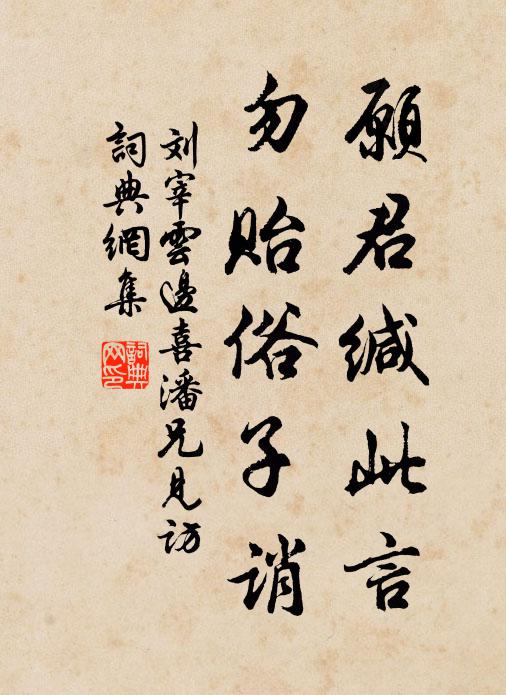 願君缄此言
勿贻俗子誚
刘宰雲邊喜潘兄見訪
詞典網集
詞典
网印